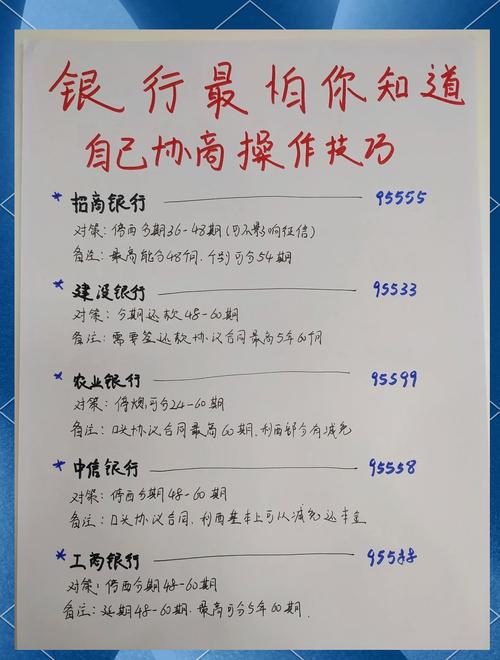 银行最怕你知道
自己协商操作技巧
* 招商银行 95555
对策：停西分期36-48期(可不影响征信)
备注：最高能分48个月、个别可分54期
* 建设银行 95533
对策：分期还款48-60期
备注：需要签还款协议合同最高5年60个月
* 农业银行 95599
对策：停烦可分24-60期
备注：口头协议合同最高60期.利西部分有减免
* 中信银行 95558
对策：停西分期48-60期
备注：口头协议合同、利西基本上可以减免还本金
* 工商银行 95588
对策：停西分期48-60期
备注：延期48-60期.最高可分5年60期.